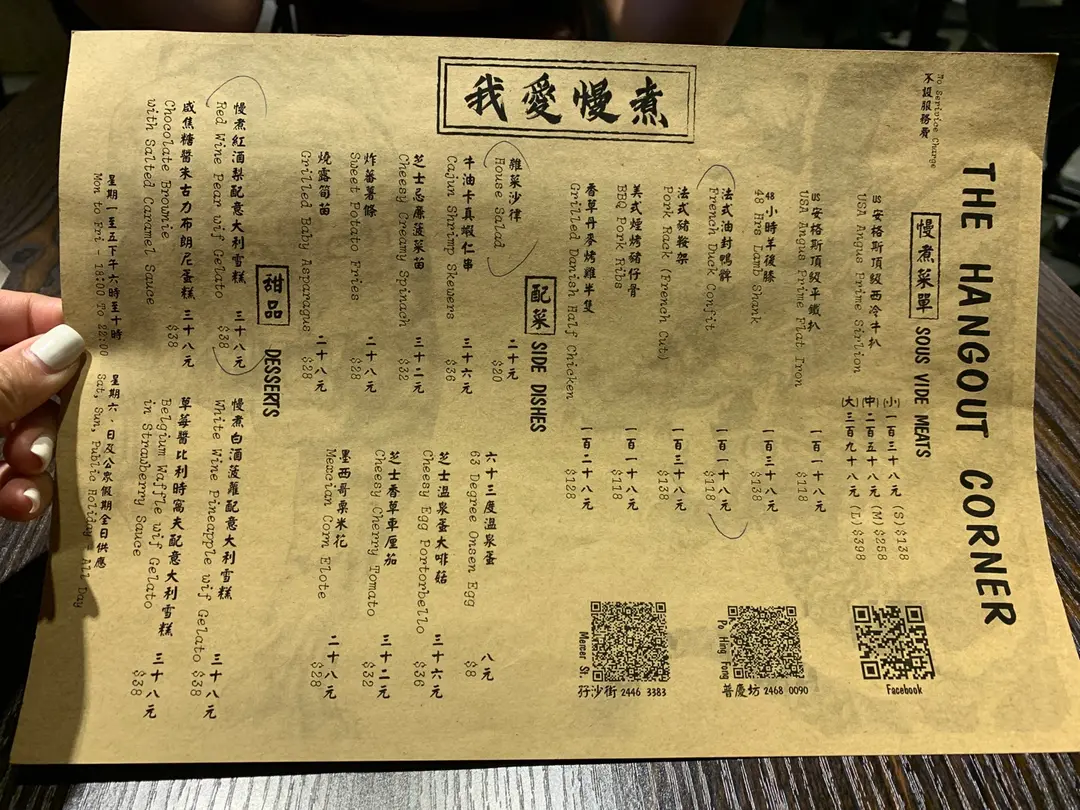 我愛慢煮
THE HANGOUT CORNER
不設服務費
慢煮菜單 SOUS VIDE MEATS
US安格斯頂級西冷牛扒
USA Angus Prime Sirlion
(小) 一百三十八元 (S)$138
(中) 二百五十八元 (M)$258
(大) 三百九十八元 (L)$398
US安格斯頂級平鐵扒 一百一十八元
USA Angus Prime Flat Iron $118
48小時羊後膝 一百三十八元
48 Hrs Lamb Shank $138
法式油封鴨髀 一百一十八元
French Duck Confit $118
法式豬鞍架 一百三十八元
Pork Rack (French Cut) $138
美式煙烤豬仔骨 一百一十八元
BBQ Pork Ribs $118
香草丹麥烤雞半隻 一百二十八元
Grilled Danish Half Chicken $128
配菜 SIDE DISHES
雜菜沙律 二十元
House Salad $20
牛油卡真蝦仁串 三十六元
Cajun Shrimp Skewers $36
芝士忌廉菠菜苗 三十二元
Cheesy Creamy Spinach $32
炸蕃薯條 二十八元
Sweet Potato Fries $28
燒露筍苗 二十八元
Grilled Baby Asparagus $28
六十三度溫泉蛋 八元
63 Degree Onsen Egg $8
芝士溫泉蛋大啡菇 三十六元
Cheesy Egg Portorbello $36
芝士香草車厘茄 三十二元
Cheesy Cherry Tomato $32
墨西哥粟米花 二十八元
Mexcian Corn Elote $28
甜品 DESSERTS
慢煮紅酒梨配意大利雪糕 三十八元
Red Wine Pear wif Gelato $38
咸焦糖醬朱古力布朗尼蛋糕 三十八元
Chocolate Brownie
with Salted Caramel Sauce $38
慢煮白酒菠蘿配意大利雪糕 三十八元
White Wine Pineapple wif Gelato $38
草莓醬比利時窩夫配意大利雪糕 三十八元
Belgium Waffle wif Gelato
in Strawberry Sauce $38
星期一至五下午六時至十時
Mon to Fri - 18:00 To 22:00
星期六、日及公眾假期全日供應
Sat, Sun, Public Holiday - All Day
Facebook
Po Hing Fung
普慶坊 2468 0090
Mercer St.
孖沙街 2446 3383